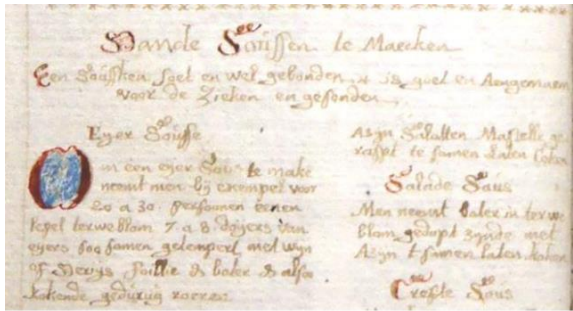 Van de Saussen te Maecken
Een Sausken soet en wel gebonden, is goet en Aengenaem
voor de Zieken en gesonden,
Eyer Sausse
Om een eyer Saus te make
neemt men bij exempel voor
20 a 30 persoonen eenen
lepel terwe blom 7 a 8 doyers van
eyers soo samen getempert met wyn
of Verjys foillie & boter & alsoo
kokende geduryg roeren
Asyn Mastelle ge
raspt te samen laten koken
Salade Saus
Men neemt boter in terwe
blom gedopt zynde met
Asyn t samen laten koken
Saus